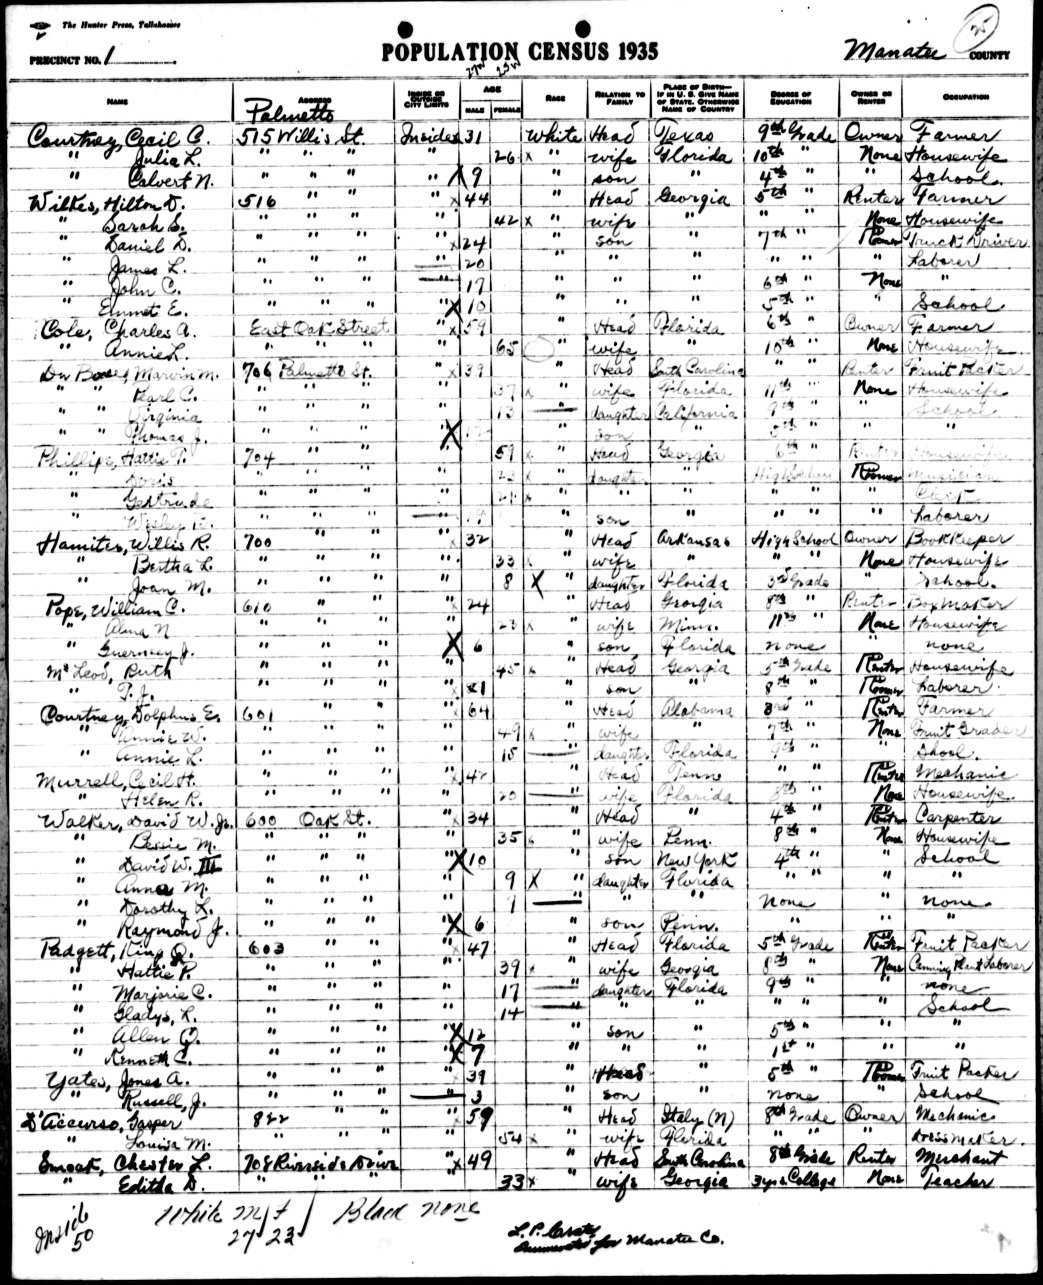 The Hunter Press, Tallahassee
25
PRECINCT NO. 1
POPULATION CENSUS 1935
Manatee COUNTY
27W 23W
NAME ADDRESS INSIDE OR OUTSIDE CITY LIMITS AGE MALE FEMALE RACE RELATION TO FAMILY PLACE OF BIRTH—IF IN U. S. GIVE NAME OF STATE. OTHERWISE NAME OF COUNTRY DEGREE OF EDUCATION OWNER OR RENTER OCCUPATION
Palmetto
Courtney, Cecil C. 515 Willis St. Inside 31 White Head Texas 9th Grade Owner Farmer
" Julia L. " " " " 26 x " wife Florida 10th " None Housewife
" Calvert N. " " " " X 9 " son " 4th " " School.
Wilkes, Hilton D. 516 " " " x 44 " Head Georgia 5th " Renter Farmer
" Sarah S. " " " " 42 x " wife " " " None Housewife
" Daniel D. " " " " x 24 " son " 7th " Roomer Truck Driver
" James L. " " " " 20 " " " " " " Laborer
" John C. " " " " 17 " " " 6th " None "
" Emmet E. " " " " X 10 " " " 5th " " School
Cole, Charles A. East Oak Street " x 59 " Head Florida 6th " Owner Farmer
" Annie L. " " " " 65 " wife " 10th " None Housewife
Du Bose, Marvin M. 706 Palmetto St. " x 39 " Head South Carolina " " Renter Fruit Packer
" " Pearl C. " " " " 37 x " wife Florida 11th " None Housewife
" " Virginia " " " " 13 " daughter California 9th " " School
" " Thomas J. " " " " X 12 " son " 5th " " "
Phillips, Hattie P. 704 " " " 59 x " Head Georgia 6th " Renter Housewife
" Doris " " " " 23 x " daughter " High School Roomer Musician
" Gertrude " " " " 21 x " " " " " " Clerk
" Wesley " " " " 19 " son " " " " Laborer
Hamiter, Willis R. 700 " " " x 32 " Head Arkansas High School Owner Bookkeeper
" Bertha L. " " " " 33 x " wife " " " None Housewife
" Joan M. " " " " 8 X " daughter Florida 3rd Grade " School.
Pope, William C. 610 " " " x 24 " Head Georgia 8th " Renter Box Maker
" Alma N " " " " 23 x " wife Minn. 11th " None Housewife
" Guernsey J. " " " " X 6 " son Florida none " none
McLeod, Ruth " " " " 45 x " Head Georgia 5th Grade Renter Housewife
" T. J. " " " " x 21 " son " 8th " Roomer Laborer
Courtney, Dolphus E. 601 " " " x 64 " Head Alabama 3rd " Renter Farmer
" Annie W. " " " " 49 x " wife " 7th " None Fruit Grader
" Annie L. " " " " 15 " daughter Florida 9th " " Shool.
Murrell, Cecil H. " " " " x 42 " Head Tenn " " Renter Mechanic
" Helen R. " " " " 20 " wife Florida 8th " None Housewife.
Walker, David W. Jr. 600 Oak St. " x 34 " Head " 4th " Renter Carpenter
" Bessie M. " " " " 35 x " wife Penn. 8th " None Housewife
" David W. III " " " " X 10 " son New York 4th " " School
" Anna M. " " " " 9 X " daughter Florida " " " "
" Dorothy L. " " " " 7 " " " None " none
" Raymond J. " " " " X 6 " son Penn. " " "
Padgett, King Q. 603 " " " x 47 " Head Florida 5th Grade Renter Fruit Packer
" Hattie P. " " " " 39 x " wife Georgia 8th " None Canning Plant Laborer
" Marjorie C. " " " " 17 " daughter Florida 9th " " none
" Gladys, R. " " " " 14 " " " " " " School
" Allen Q. " " " " X 12 " son " 5th " " "
" Kenneth C. " " " " X 7 " " " 1st " " "
Yates, Jones A. " " " " x 39 " Head " 5th " Roomer Fruit Packer
" Russell, J. " " " " 3 " son " none " School
D'Accurso, Gasper 822 " " " x 59 " Head Italy (N) 8th Grade Owner Mechanic
" Louisa M. " " " " 54 x " wife Florida " " " Dressmaker.
Smoak, Chester L. 708 Riverside Drive " x 49 " Head South Carolina 8th Grade Renter Merchant
" Editha D. " " " " 33 x " wife Georgia 3 yrs College None Teacher
Inside 50
White M / F / Black none
27 23
Enumerator for Manatee Co.